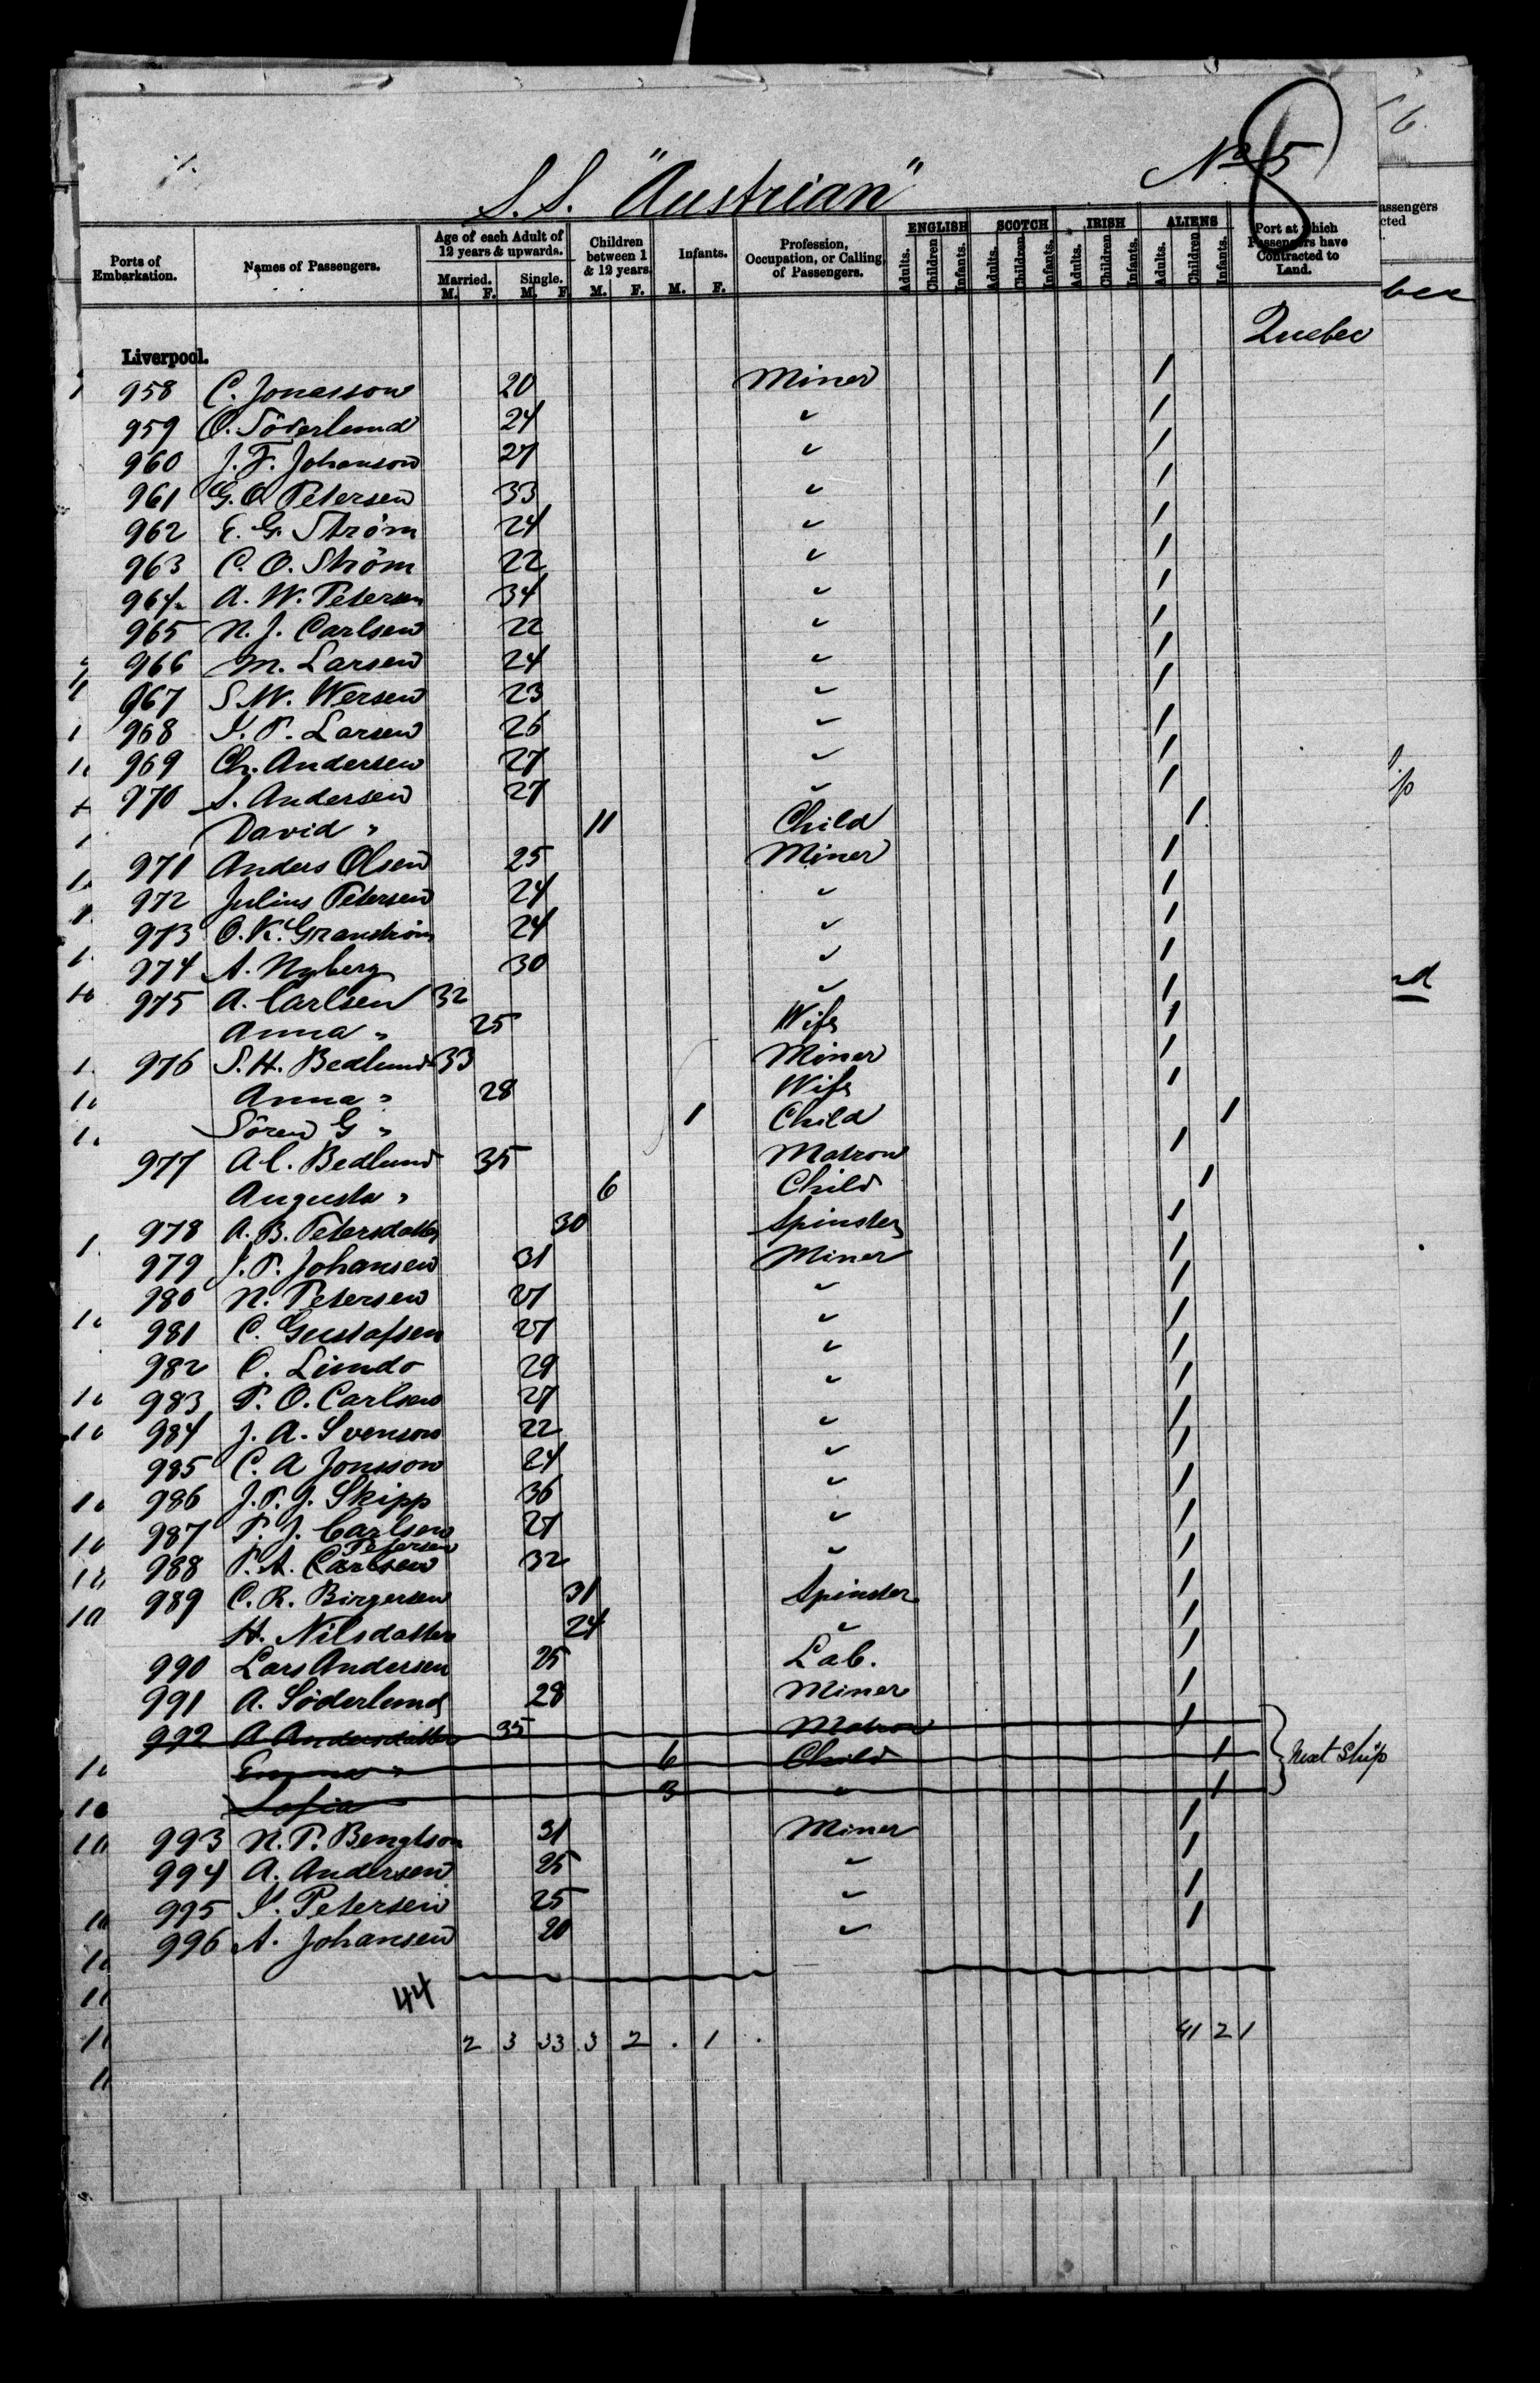 No 5
8
S.S. "Austrian"
Ports of Embarkation. Names of Passengers. Age of each Adult of 12 years & upwards. Married. M. F. Single. M. F. Children between 1 & 12 years. M. F. Infants. M. F. Profession, Occupation, or Calling of Passengers. ENGLISH Adults. Children Infants. SCOTCH Adults. Children Infants. IRISH Adults. Children Infants. ALIENS Adults. Children Infants. Port at which Passengers have Contracted to Land.
Quebec
Liverpool.
958 C. Jonasson 20 Miner 1
959 O. Söderlund 24 " 1
960 J. F. Johanson 27 " 1
961 G. O. Petersen 33 " 1
962 E. G. Ström 24 " 1
963 C. O. Ström 22 " 1
964 A. W. Petersen 34 " 1
965 N. J. Carlsen 22 " 1
966 M. Larsen 24 " 1
967 S. W. Wersen 23 " 1
968 J. P. Larsen 26 " 1
969 Ch. Andersen 27 " 1
970 S. Andersen 27 " 1
David " 11 Child 1
971 Anders Olsen 25 Miner 1
972 Julius Petersen 24 " 1
973 O. K. Granström 24 " 1
974 A. Nyberg 30 " 1
975 A. Carlsen 32 " 1
Anna " 25 Wife 1
976 S. H. Bedlund 33 Miner 1
Anna " 28 Wife 1
Sören G " 1 Child 1
977 A C. Bedlund 35 Matron 1
Augusta " 6 Child 1
978 A. B. Petersdatter 30 Spinster 1
979 J. P. Johansen 31 Miner 1
980 N. Petersen 27 " 1
981 C. Gustafsen 27 " 1
982 C. Lindo 29 " 1
983 P. O. Carlsen 27 " 1
984 J. A. Svenson 22 " 1
985 C. A Jonsson 24 " 1
986 J. P. J. Skipp 36 " 1
987 P. J. Carlsen 27 " 1
Petersen
988 P. A. Carlsen 32 " 1
989 C. R. Birgersen 31 Spinster 1
H. Nilsdatter 24 " 1
990 Lars Andersen 25 Lab. 1
991 A. Söderlund 28 Miner 1
992 A Andersdatter 35 Matron 1
Emma " 6 Child 1 Next Ship
Sofia 3 " 1
993 N. P. Bengtson 31 Miner 1
994 A. Andersen 25 " 1
995 J. Petersen 25 " 1
996 A. Johansen 20 " 1
44
2 3 33 3 2 . 1 . 41 2 1